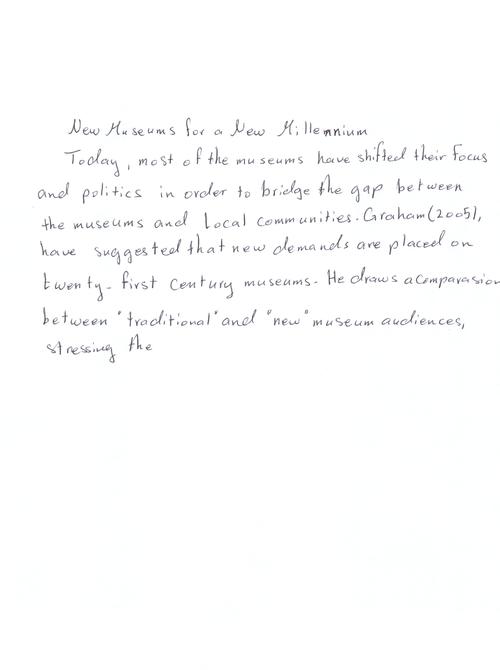 New Museums for a New Millennium
Today, most of the museums have shifted their focus
and politics in order to bridge the gap between
the museums and Local communities. Graham (2005),
have suggested that new demands are placed on
twenty-first century museums. He draws a comparasion
between "traditional" and "new" museum audiences,
stressing the